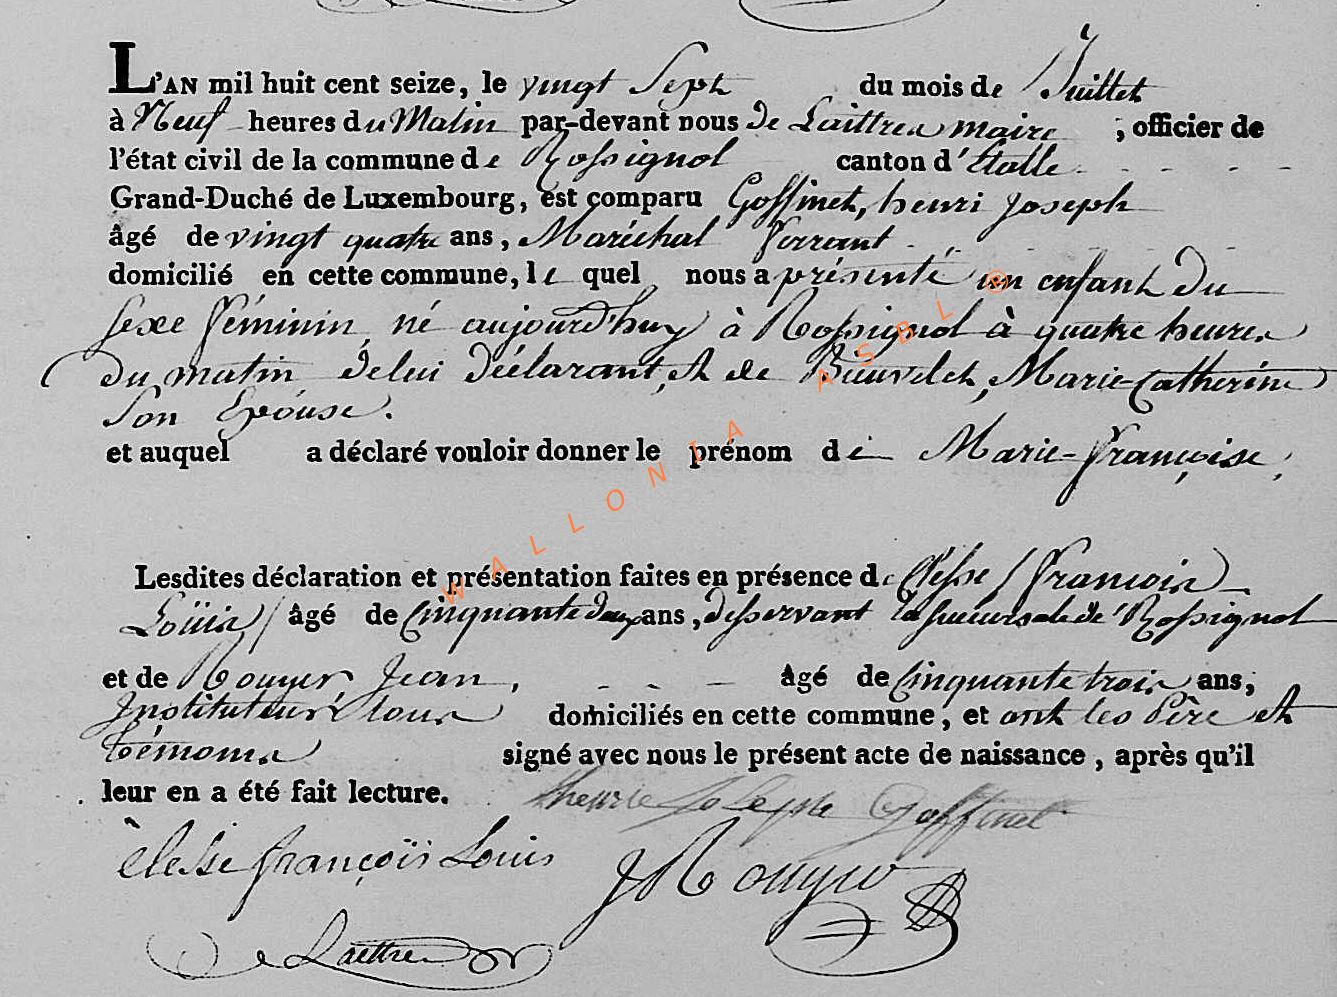 L'AN mil huit cent seize, le vingt Sept du mois de Juillet
à Neuf heures du Matin par-devant nous de Laittres maire, officier de
l'état civil de la commune de Rossignol canton d'Étalle
Grand-Duché de Luxembourg, est comparu Goffinet, henri Joseph
âgé de vingt quatre ans, Maréchal ferrant
domicilié en cette commune, le quel nous a présenté un enfant du
sexe féminin né aujourd'huy à Rossignol à quatre heures
du matin de lui déclarant, et de Marie-Catherine
Son Epouse.
et auquel a déclaré vouloir donner le prénom de Marie-françoise,
Lesdites déclaration et présentation faites en présence de Clesse / françois
Loüis / âgé de Cinquante deux ans, desservant la succursale de Rossignol
et de Rouyer, Jean, âgé de Cinquante trois ans,
Instituteur, tous domiciliés en cette commune, et ont les Père et
témoins signé avec nous le présent acte de naissance, après qu'il
leur en a été fait lecture. henrie Joseph Goffinet
Clesse françois Louis JRouyer
de Laittres
WALLONIA ASBL ®